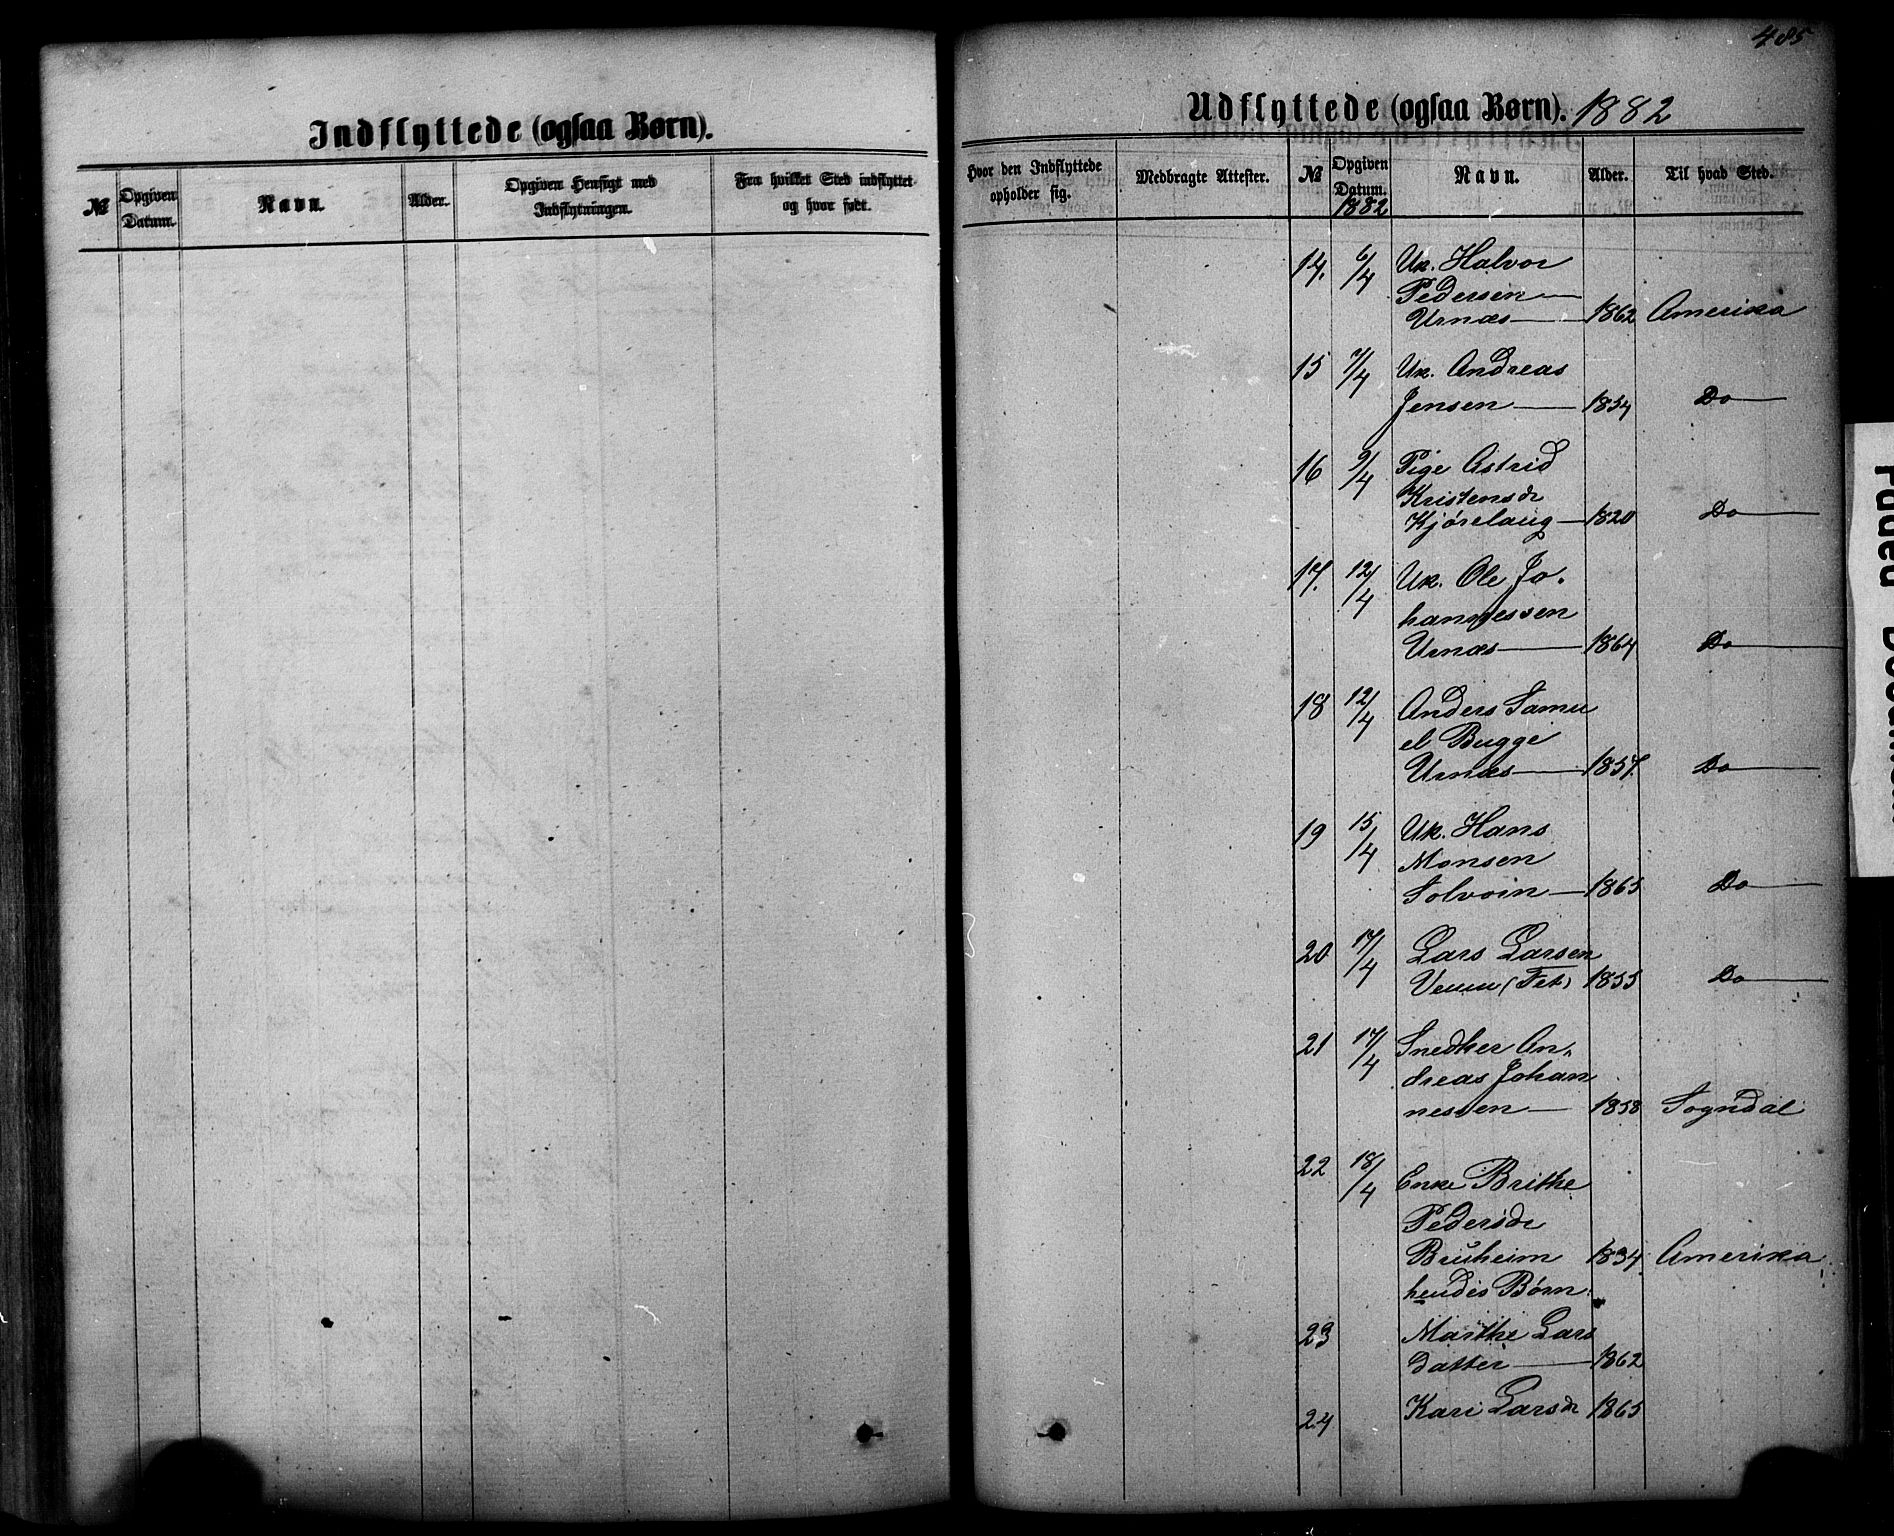 485
Indflyttede (ogsaa Børn).
№
Opgiven Datum.
Navn.
Alder.
Opgiven Hensigt med Indflytningen.
Fra hvilket Sted indflyttet og hvor født.
Udflyttede (ogsaa Børn). 1882
Hvor den Indflyttede opholder sig.
Medbragte Attester.
№
Opgiven Datum.
1882
Navn.
Alder.
Til hvad Sted.
14. 6/4 Uk. Halvor
Pedersen
Urnæs 1862 Amerika
15 7/4 Uk. Andreas
Jensen 1854 Do
16 9/4 Pige Astrid
Kristensdr
Kjørelaug 1820 Do
17. 12/4 Uk. Ole Jo-
hannessen
Urnæs 1864 Do
18 12/4 Anders Samu
el Bugge
Urnæs 1857. Do
19 15/4 Uk. Hans
Monsen
Solvoin 1865 Do
20 17/4 Lars Larsen
(Fet) 1855 Do
21 17/4 Snedker An-
dreas Johan
nessen 1858 Sogndal
22 18/4 Enke Brithe
Pedersdr
Bruheim 1834 Amerika
hendes Børn:
23 Marthe Lars
datter 1862
24 Kari Larsdr 1865
Faded Document